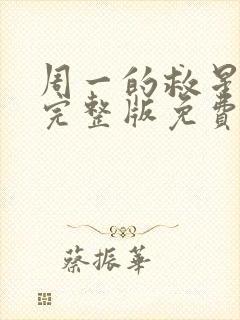 周一的救星
完整版免费
蔡振华